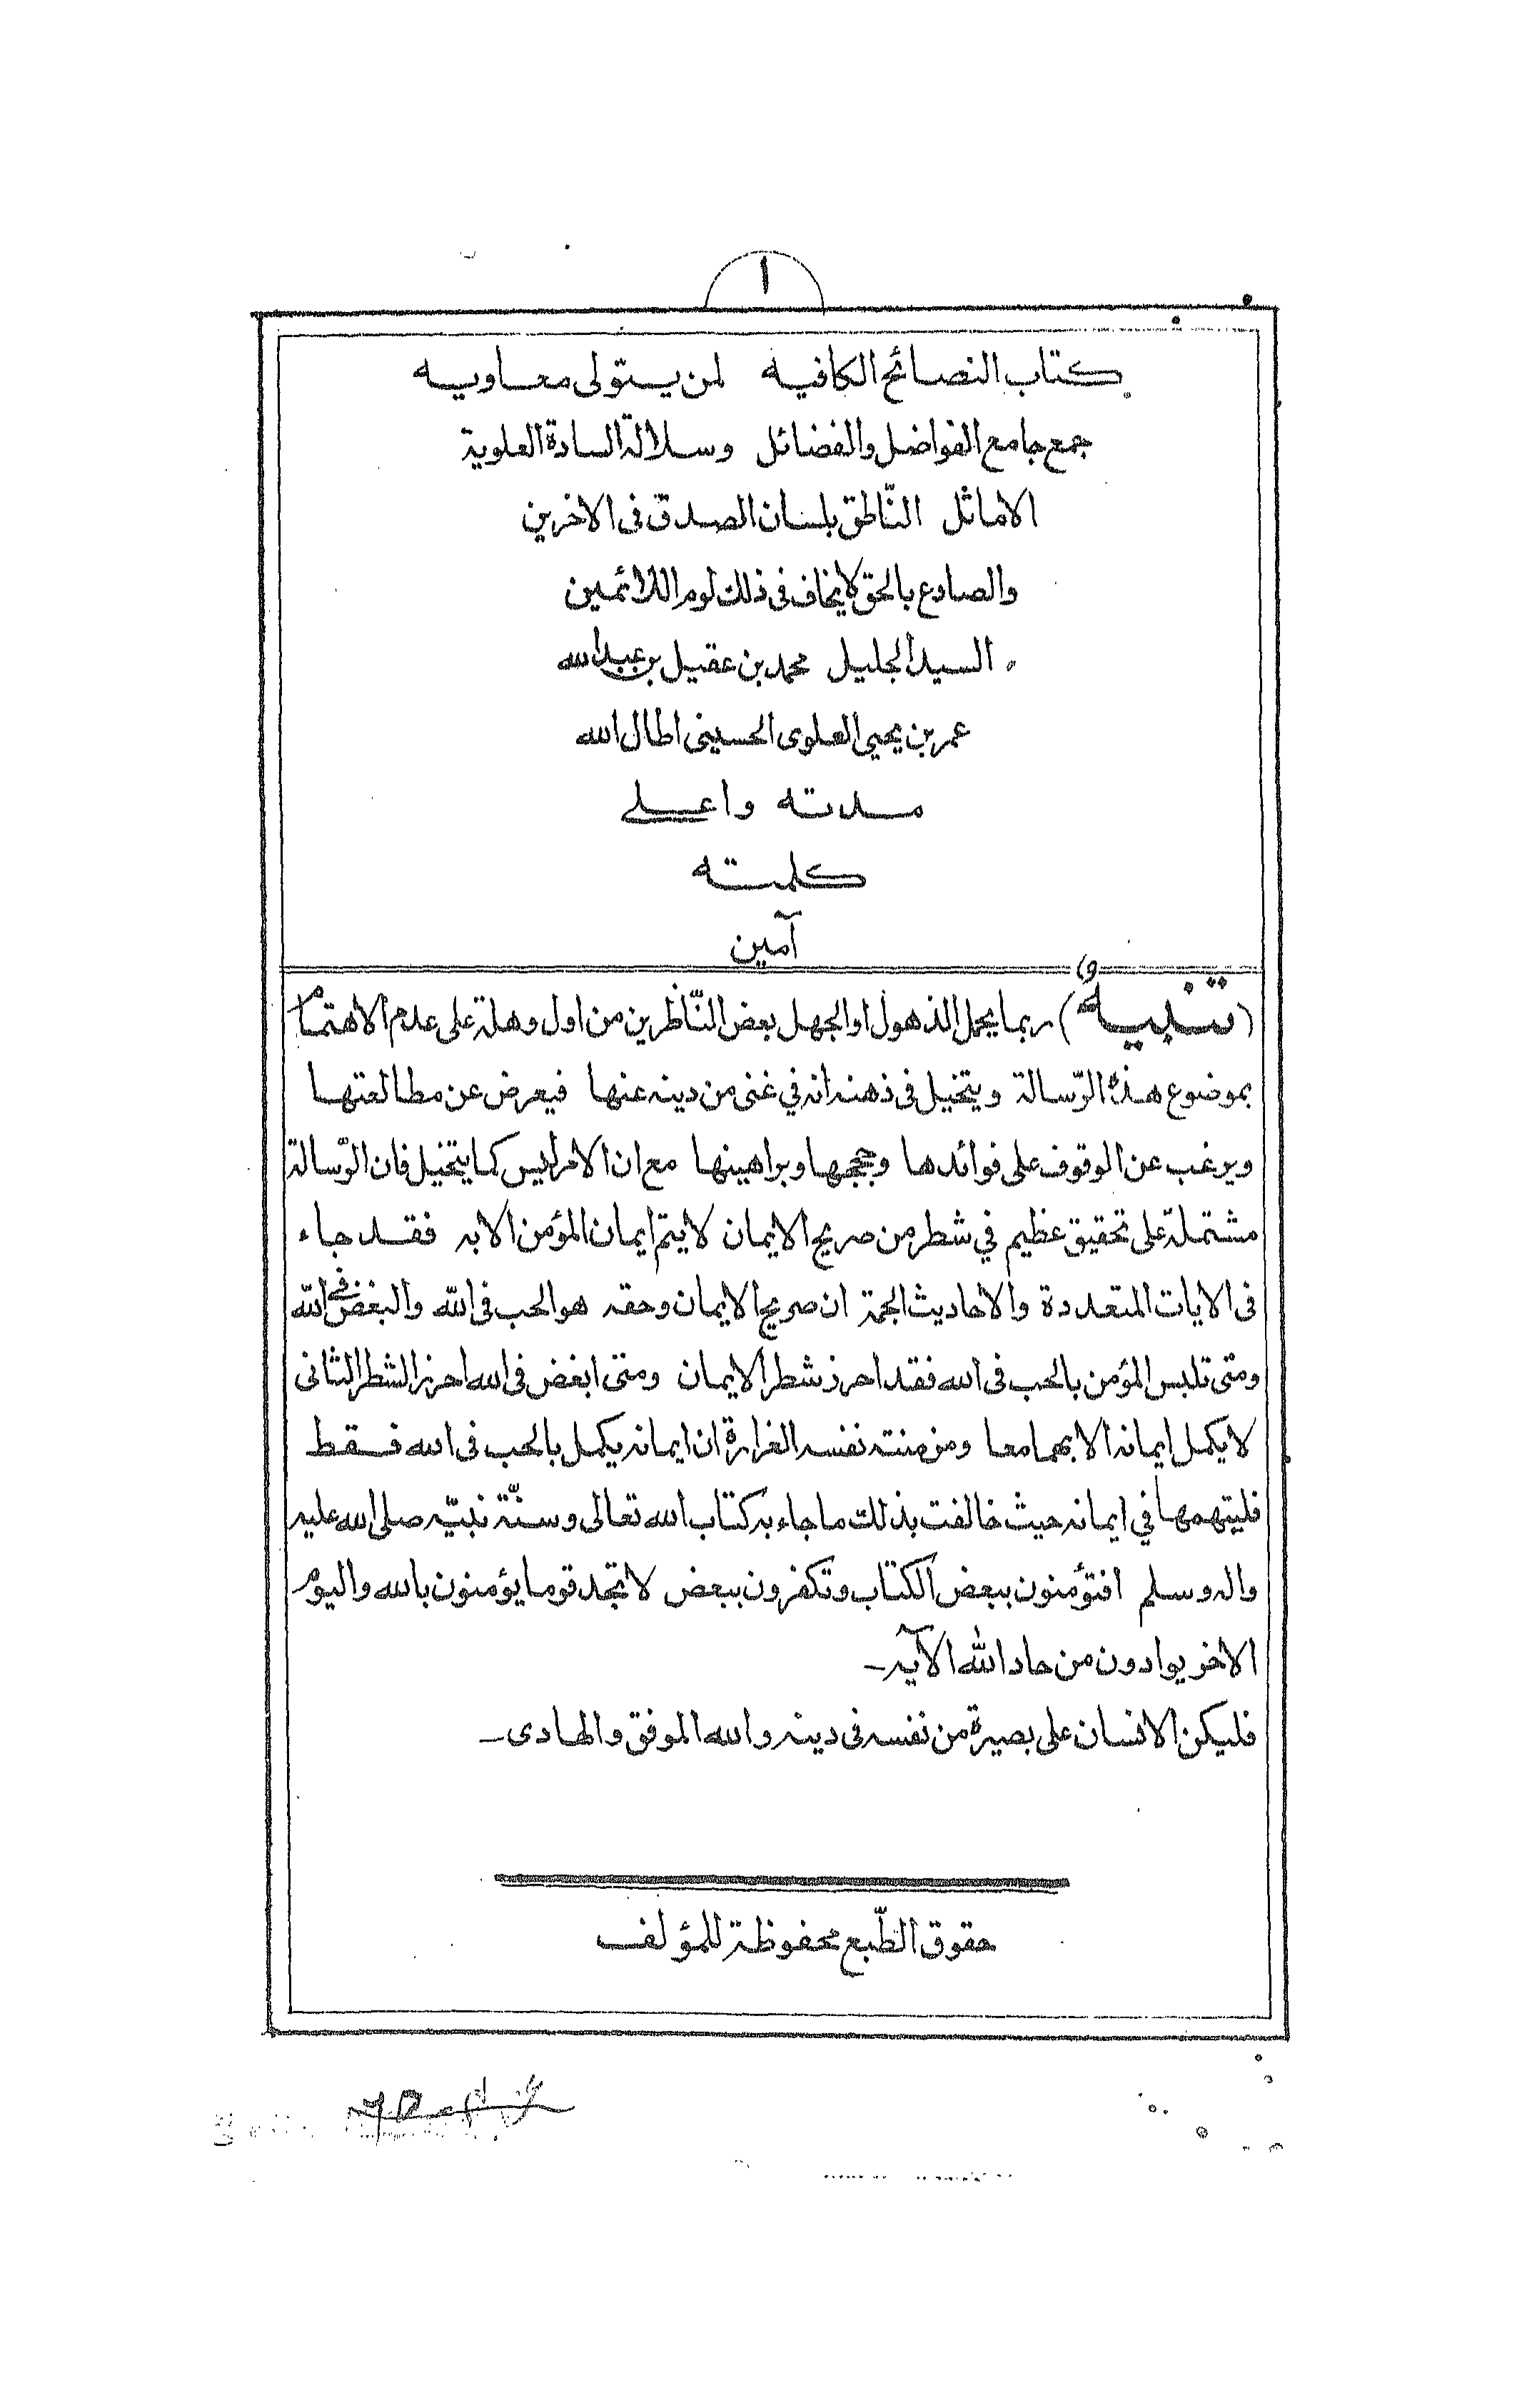 ١
كتاب النصائح الكافيه لمن يتولى معاويه
جمع جامع الفواضل والفضائل وسلالة السادة العلوية
الاماثل النّاطق بلسان الصدق فى الاخرين
والصادع بالحق لايخاف فى ذلك لوم اللائمين
السيد الجليل محمد بن عقيل بن عبدالله
عمر بن يحيى العلوى الحسينى اطال الله
مدته واعلى
كلمته
آمين
(تنبيه) ربما يحمل الذهول او الجهل بعض النّاظرين من اول وهلة على عدم الاهتمام
بموضوع هذه الرّسالة ويتخيل فى ذهنه انه في غنى من دينه عنها فيعرض عن مطالعتها
ويرغب عن الوقوف على فوائدها وحججها وبراهينها مع ان الامر ليس كما يتخيل فان الرّسالة
مشتملة على تحقيق عظيم في شطر من صريح الايمان لايتم ايمان المؤمن الابه فقد جاء
فى الايات المتعددة والاحاديث الجمة ان صريح الايمان وحقه هو الحب فى الله والبغض فى الله
ومتى تلبس المؤمن بالحب فى الله فقد احرز شطر الايمان ومتى ابغض فى الله احرز الشطر الثانى
لايكمل ايمانه الابهما معا ومن منته نفسه الغرارة ان ايمانه يكمل بالحب فى الله فقط
فليتهمها في ايمانه حيث خالفت بذلك ماجاء به كتاب الله تعالى وسنّة نبيّه صلى الله عليه
واله وسلم افتؤمنون ببعض الكتاب وتكفرون ببعض لاتجد قوما يؤمنون بالله واليوم
الاخر يوادون من حاد الله الآيه ـ
فليكن الانسان على بصيرة من نفسه فى دينه والله الموفق والهادى ـ
حقوق الطّبع محفوظة للمؤلف